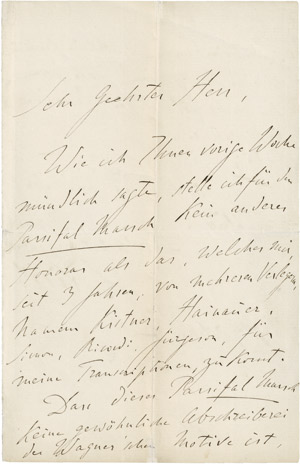 Sehr Geehrter Herr,
Wie ich Ihnen vorige Woche
mündlich sagte, stelle ich für den
Parsifal Marsch kein anderes
Honorar als das, welches mir
seit 3 Jahren, von mehreren Verlegern,
Namens Kistner, Hainauer,
Simon, Ricordi, Jürgenson, für
meine Transcriptionen, zu kommt.
Dass dieser Parsifal Marsch
keine gewöhnliche Abschreiberei
der Wagner'schen Motive ist,